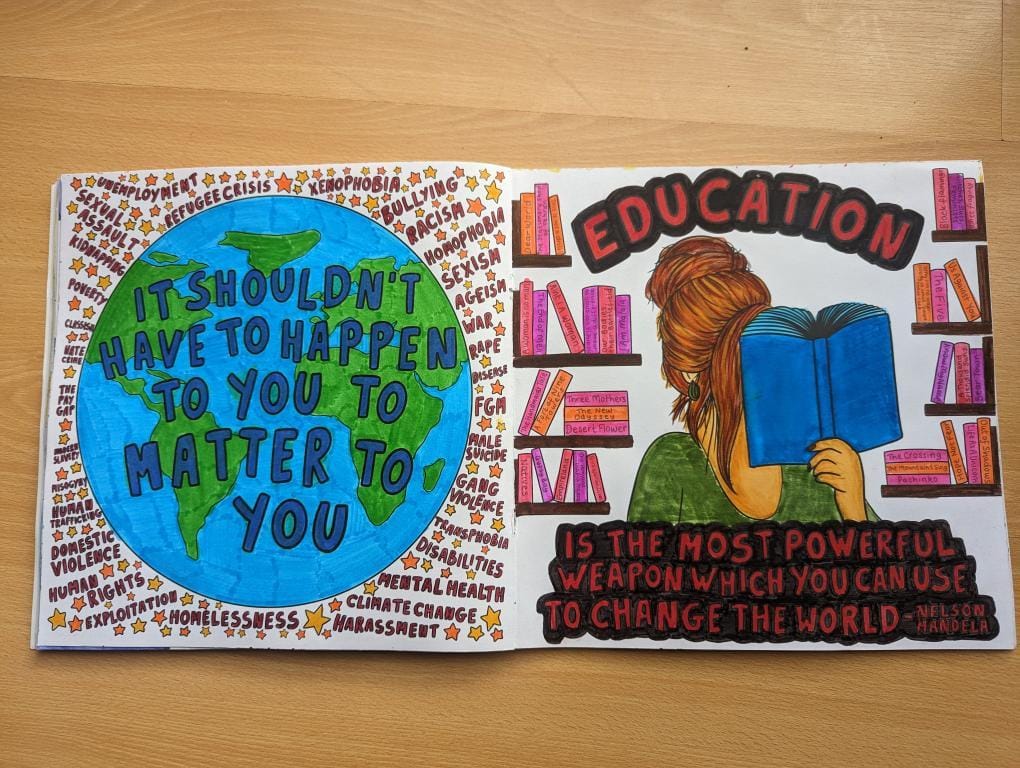 UNEMPLOYMENT
REFUGEE CRISIS
XENOPHOBIA
BULLYING
RACISM
HOMOPHOBIA
SEXISM
AGEISM
WAR
RAPE
DISEASE
FGM
MALE
SUICIDE
GANG
VIOLENCE
TRANSPHOBIA
DISABILITIES
MENTAL HEALTH
CLIMATE CHANGE
HARASSMENT
HOMELESSNESS
EXPLOITATION
HUMAN
RIGHTS
DOMESTIC
VIOLENCE
HUMAN
TRAFFICKING
MISOGYNY
MODERN
SLAVERY
THE
PAY
GAP
HATE
CRIME
CLASSISM
POVERTY
KIDNAPPING
SEXUAL
ASSAULT
IT SHOULDN'T
HAVE TO HAPPEN
TO YOU TO
MATTER TO
YOU
EDUCATION
Dear World
And A Woman
Our Bodies
Their Battlefield
I Am Malala
Three Mothers
The New
Odyssey
Desert Flower
Black Flamingo
The Five
The Crossing
The Mountains Sing
Pachinko
Out of Shadows
IS THE MOST POWERFUL
WEAPON WHICH YOU CAN USE
TO CHANGE THE WORLD -NELSON
MANDELA